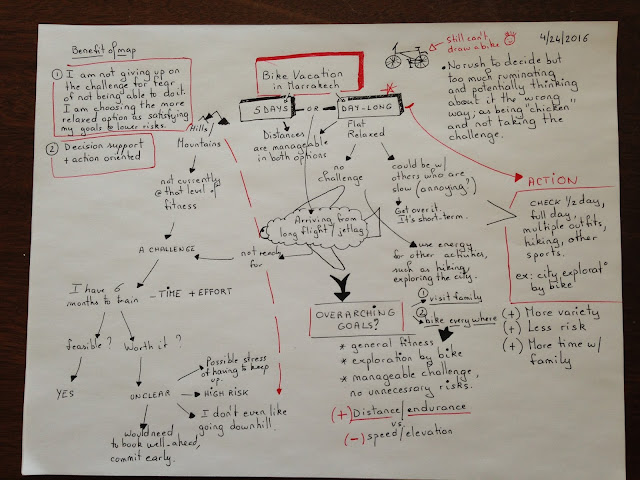 Benefit of map
① I am not giving up on
the challenge for fear
of not being able to do it.
I am choosing the more
relaxed option as satisfying
my goals to lower risks.
② Decision support
+ action oriented
Still can't
draw a bike
4/24/2016
Bike Vacation
in Marrakech
5 DAYS - OR - DAY-LONG
• No rush to decide but
too much ruminating
and potentially thinking
about it the wrong
way; as being "chicken"
and not taking the
challenge.
Hills
Mountains
Distances
are manageable
in both options
Flat
Relaxed
not currently
@ that level of
fitness
no
challenge
could be w/
others who are
slow (annoying?)
Get over it.
It's short-term.
Arriving from
long flight / jetlag
not ready
for
use energy
for other activities,
such as hiking,
exploring the city.
ACTION
CHECK 1/2 day,
full day,
multiple outfits,
hiking, other
sports.
ex: city explorat°
by bike
(+) More variety
(+) Less risk
(+) More time w/
family
A CHALLENGE
I have 6
months to train
- TIME + EFFORT
feasible?
Worth it?
YES
UNCLEAR
Possible stress
of having to keep
up.
HIGH RISK
I don't even like
going downhill.
Would need
to book well-ahead,
commit early.
OVERARCHING
GOALS?
① visit family
② bike everywhere
* general fitness
* exploration by bike
* manageable challenge,
no unnecessary risks.
(+) Distance/endurance
vs.
(-) speed/elevation